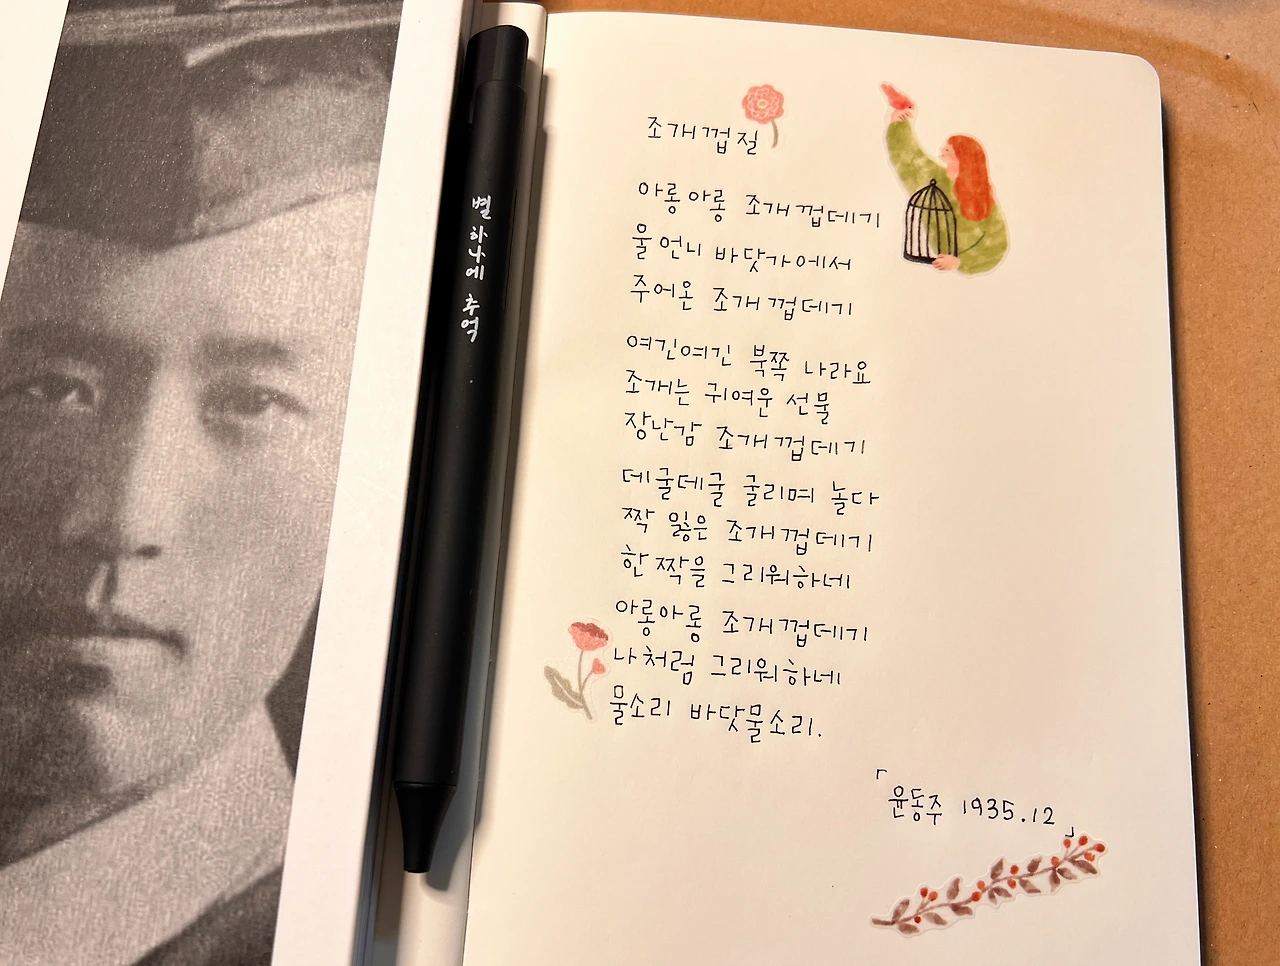 별 하나에 추억
조개껍절
아롱아롱 조개껍데기
울언니 바닷가에서
주어온 조개껍데기
여긴여긴 북쪽 나라요
조개는 귀여운 선물
장난감 조개껍데기
데굴데굴 굴리며 놀다
짝 잃은 조개껍데기
한짝을 그리워하네
아롱아롱 조개껍데기
나처럼 그리워하네
물소리 바닷물소리.
「윤동주 1935.12」